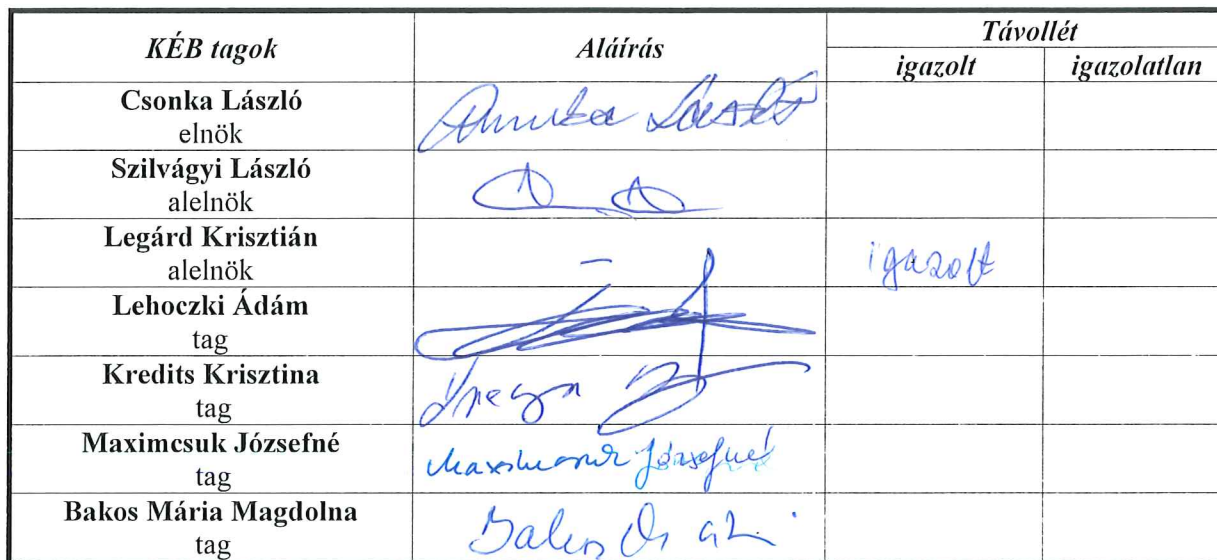 KÉB tagok Aláírás Távollét
igazolt igazolatlan
Csonka László
elnök
Szilvágyi László
alelnök
Legárd Krisztián
alelnök – igazolt
Lehoczki Ádám
tag
Kredits Krisztina
tag
Maximcsuk Józsefné Maximcsuk Józsefné
tag
Bakos Mária Magdolna
tag Bakos